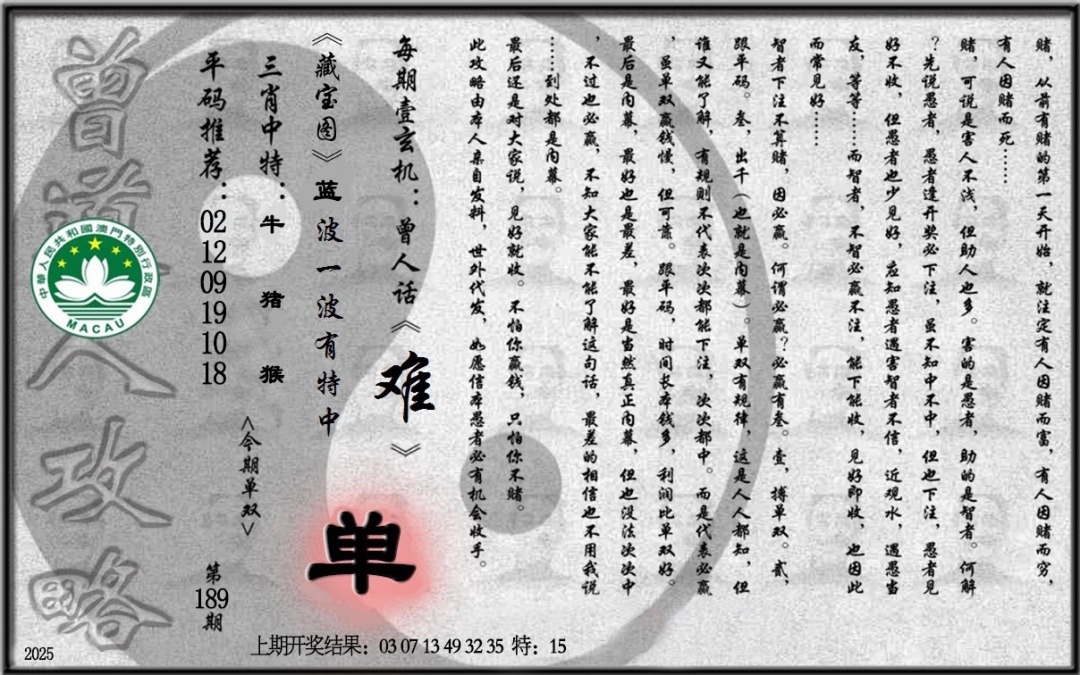 赌，从前有赌的第一天开始，就注定有人因赌而富，有人因赌而穷，
有人因赌而死……
赌，可说是害人不浅，但助人也多。害的是愚者，助的是智者。何解
？先说愚者，愚者逢开奖必下注，虽不知中不中，但也下注，愚者见
好不收，但愚者也少见好，应知愚者遇害智者不信，近观水，遇愚当
友，等等……而智者，不智必赢不注，能下能收，见好即收，也因此
而常见好……
智者下注不算赌，因必赢。何谓必赢？必赢有叁。壹，搏单双。贰，
跟平码。叁，出千（也就是内幕）。单双有规律，这是人人都知，但
谁又能了解，有规则不代表次次都能下注，次次都中。而是代表必赢
，虽单双赢钱慢，但可靠。跟平码，时间长本钱多，利润比单双好。
最后是内幕，最好也是最差，最好是当然真正内幕，但也没法次次中
，不过也必赢，不知大家能不能了解这句话，最差的相信也不用我说
……到处都是内幕。
最后还是对大家说，见好就收。不怕你赢钱，只怕你不赌。
此攻略由本人亲自发料，世外代发，如愿信本愚者必有机会收手。
每期壹玄机：曾人话《难》
《藏宝图》蓝波一波有特中
单
三肖中特：牛 猪 猴
<今期单双>
平码推荐：02 12 09 19 10 18
第189期
曾道人攻略
中華人民共和國澳門特別行政區
MACAU
上期开奖结果：03 07 13 49 32 35 特：15
2025